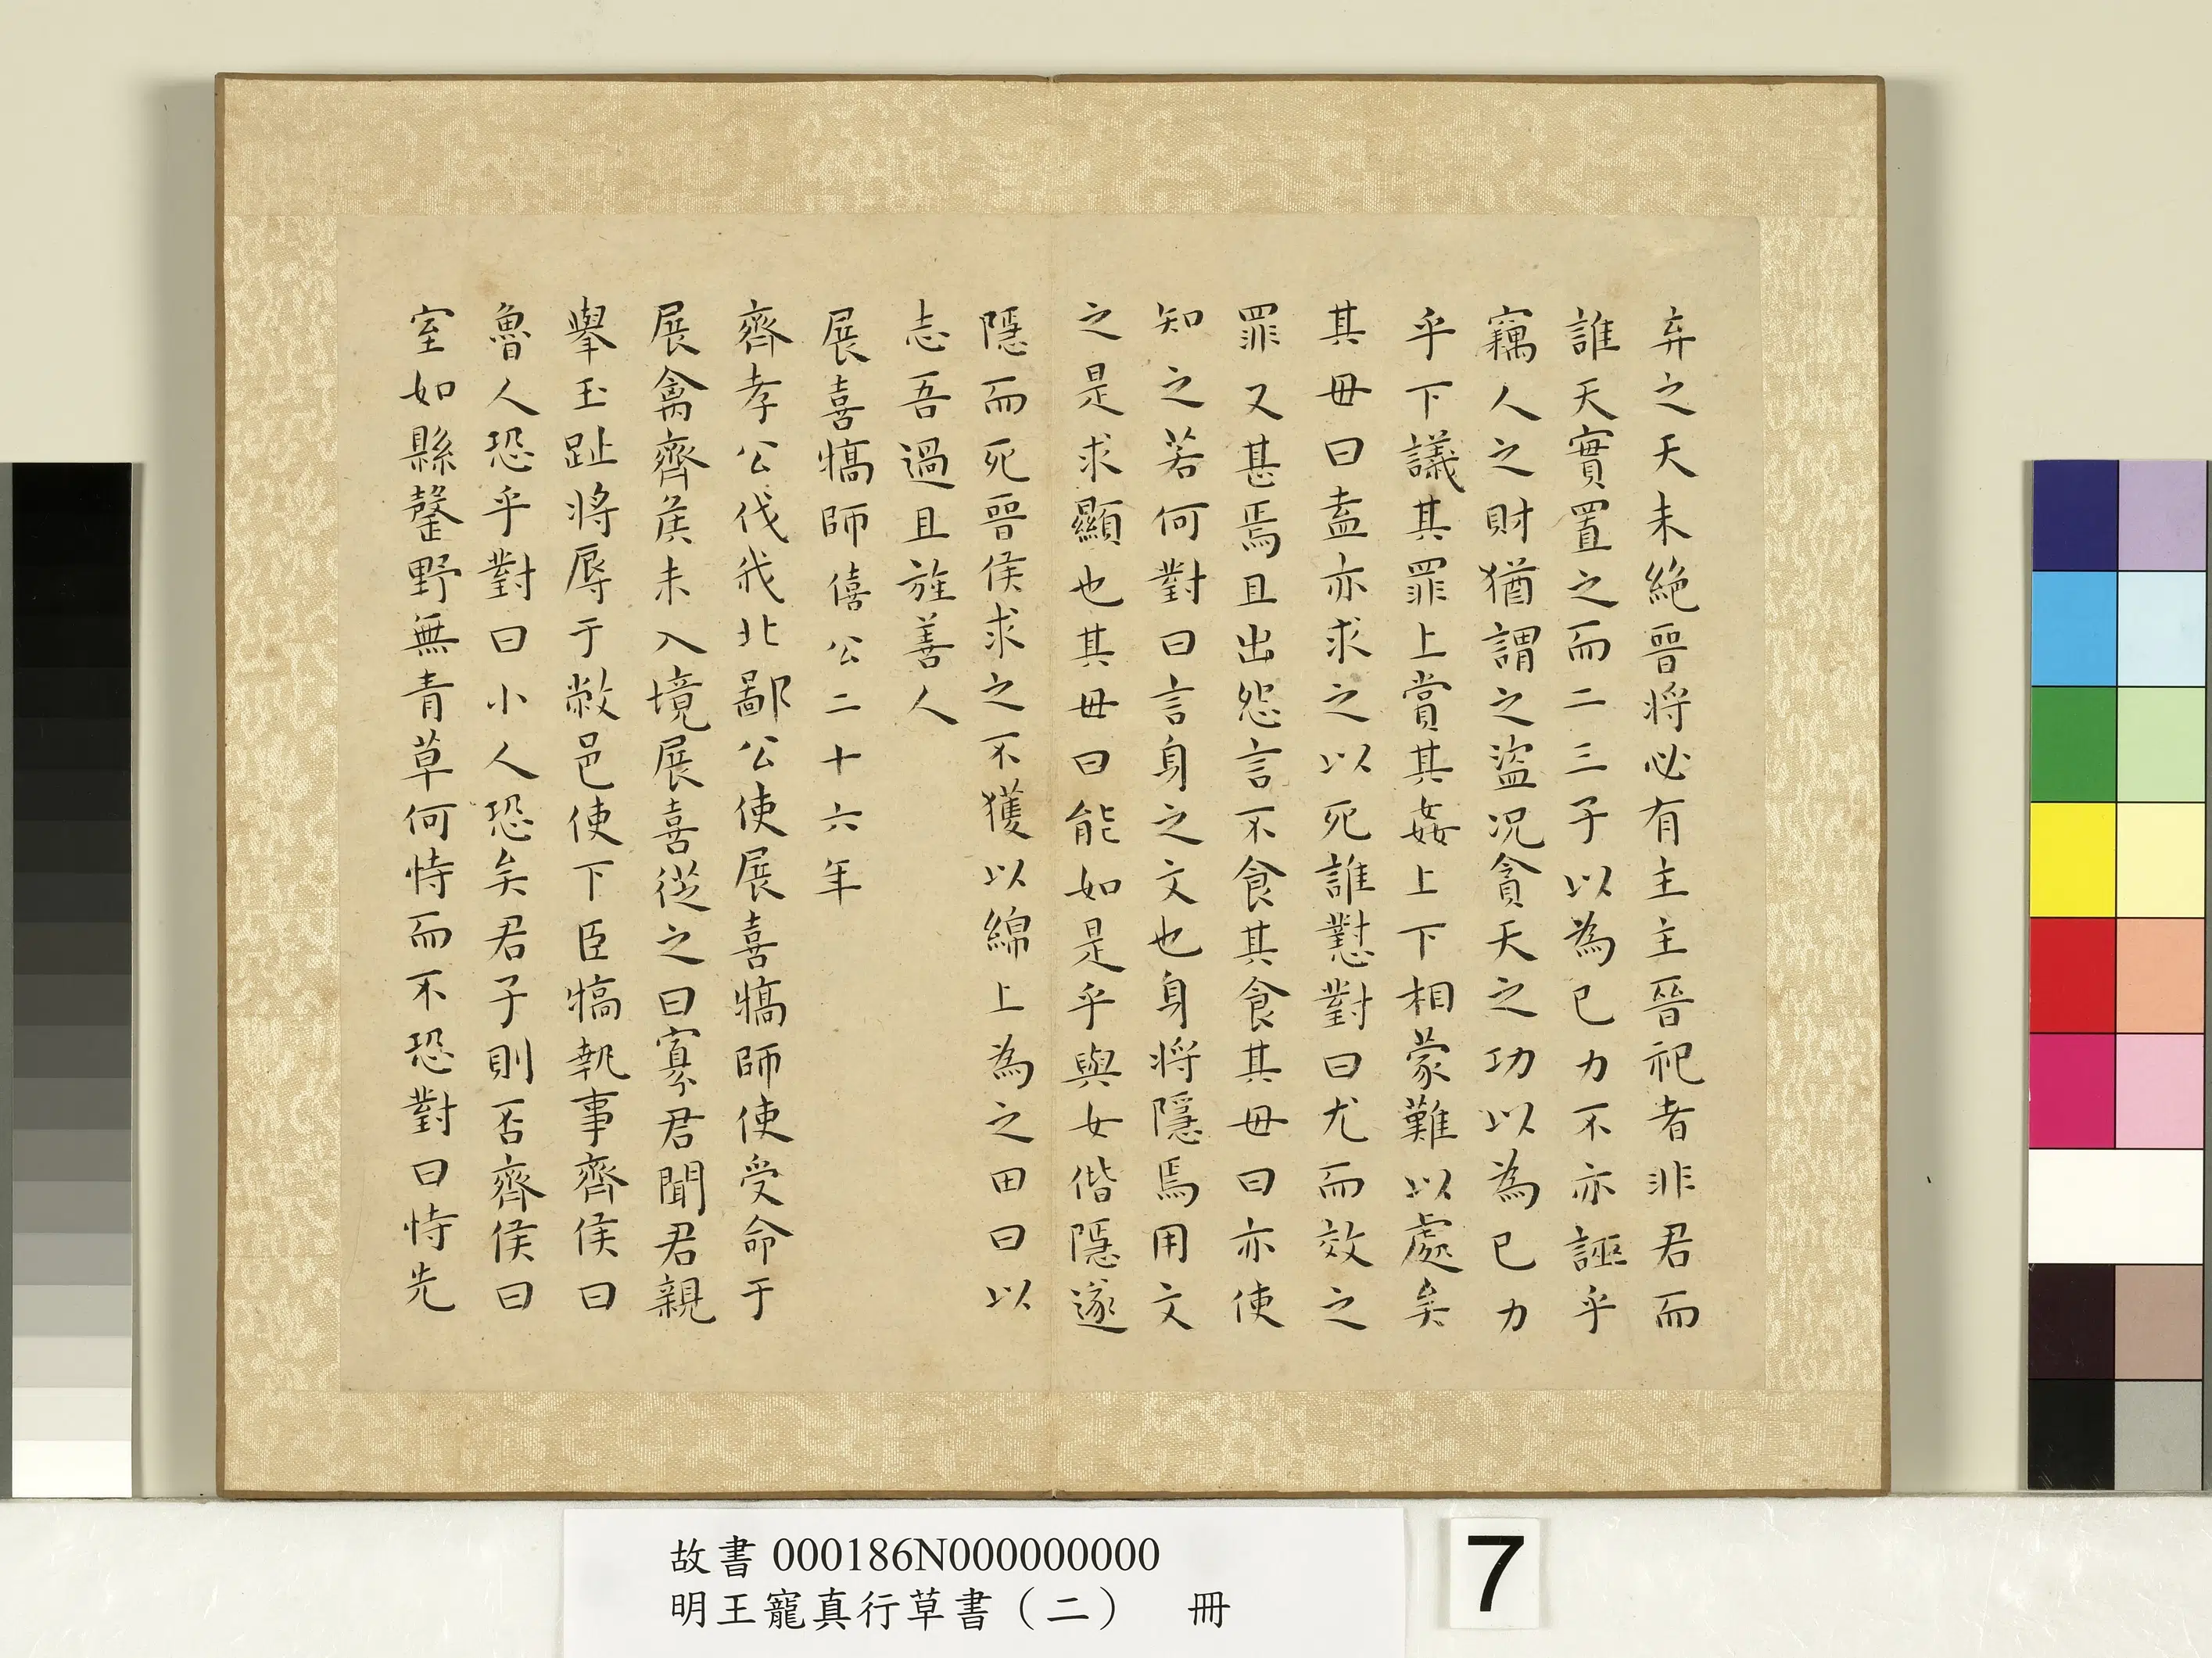 弃之天未絶晉将必有主主晉祀者非君而
誰天實置之而二三子以為已力不亦誣乎
竊人之財猶謂之盗况貪天之功以為已力
乎下議其罪上賞其姦上下相蒙難以處矣
其毋曰盍亦求之以死誰懟對曰尤而效之
罪又甚焉且出怨言不食其食其毋曰亦使
知之若何對曰言身之文也身将隱焉用文
之是求顯也其毋曰能如是乎與女偕隱遂
隱而死晉侯求之不獲以綿上為之田曰以
志吾過且旌善人
展喜犒師僖公二十六年
齊孝公伐我北鄙公使展喜犒師使受命于
展禽齊侯未入境展喜從之曰寡君聞君親
舉玉趾将辱于敝邑使下臣犒執事齊侯曰
魯人恐乎對曰小人恐矣君子則否齊侯曰
室如縣罄野無青草何恃而不恐對曰恃先
故書 000186N000000000
明王寵真行草書（二） 冊
7